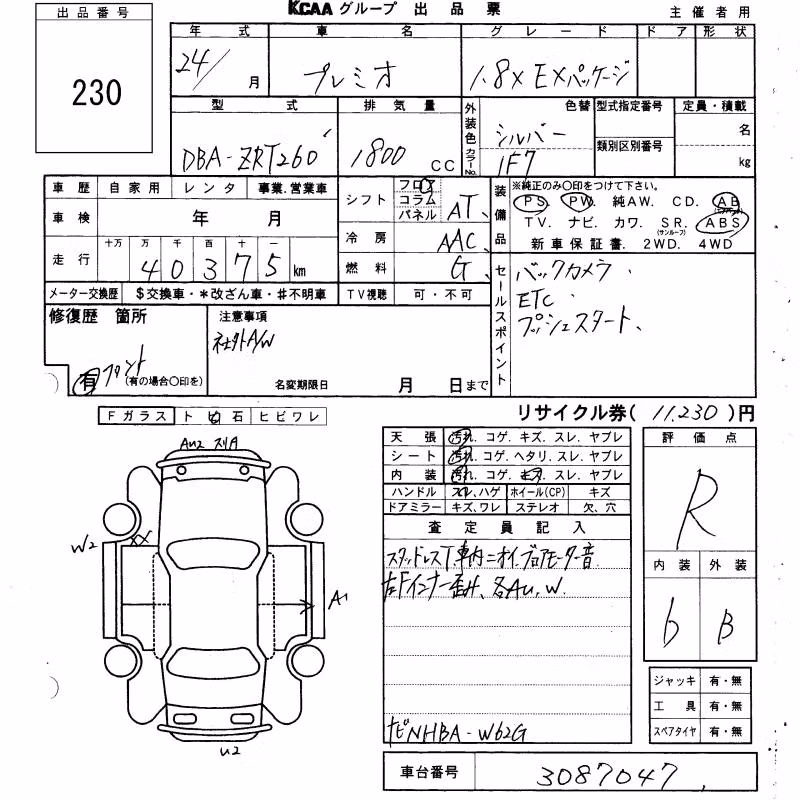 出品番号
230
KCAAグループ 出品票
主催者用
年式 車名 グレード ドア 形状
24/ 月 プレミオ 1.8X EXパッケージ
型式 排気量 外装色 カラーNo. 色替 型式指定番号 定員・積載
DBA-ZRT260 1800 CC シルバー 1F7 類別区別番号 名 kg
車歴 自家用 レンタ 事業.営業車
車検 年 月
走行 十万 万 千 百 十 一
40375 km
メーター交換歴 $交換車・*改ざん車・#不明車
シフト フロア コラム パネル AT、
冷房 AAC
燃料 G、
TV視聴 可・不可
装備品 ※純正のみ〇印をつけて下さい。
PS. PW. 純AW. CD. AB(エアバッグ)
TV. ナビ. カワ. SR.(サンルーフ) ABS
新車保証書. 2WD. 4WD
セールスポイント
バックカメラ、
ETC、
プッシュスタート、
修復歴 箇所
有 フロント
(有の場合〇印を)
注意事項
社外A/W
名変期限日 月 日まで
リサイクル券( 11,230 )円
Fガラス トビ石 ヒビワレ
AU2 スリA
W2
XX
A1
U2
天張 汚れ. コゲ. キズ. スレ. ヤブレ
シート 汚れ. コゲ. ヘタリ. スレ. ヤブレ
内装 汚れ. コゲ. キズ. スレ. ヤブレ
ハンドル スレ,ハゲ ホイール(CP) キズ
ドアミラー キズ,ワレ ステレオ 欠、穴
査定員記入
スタッドレスT 車内ニオイ、ブロアモーター音
左Fインナー歪み、各AU、W、
ナビNHBA-W62G
評価点
R
内装 外装
b B
ジャッキ 有・無
工具 有・無
スペアタイヤ 有・無
車台番号 3087047